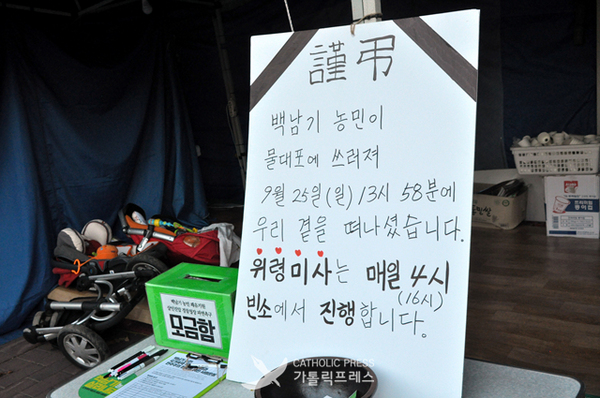 謹弔
백남기 농민이
물대포에 쓰러져
9월 25일(일) 13시 58분에
우리 곁을 떠나셨습니다.
위령미사는 매일 4시
(16시)
빈소에서 진행합니다.
모금함
CATHOLIC PRESS
가톨릭프레스